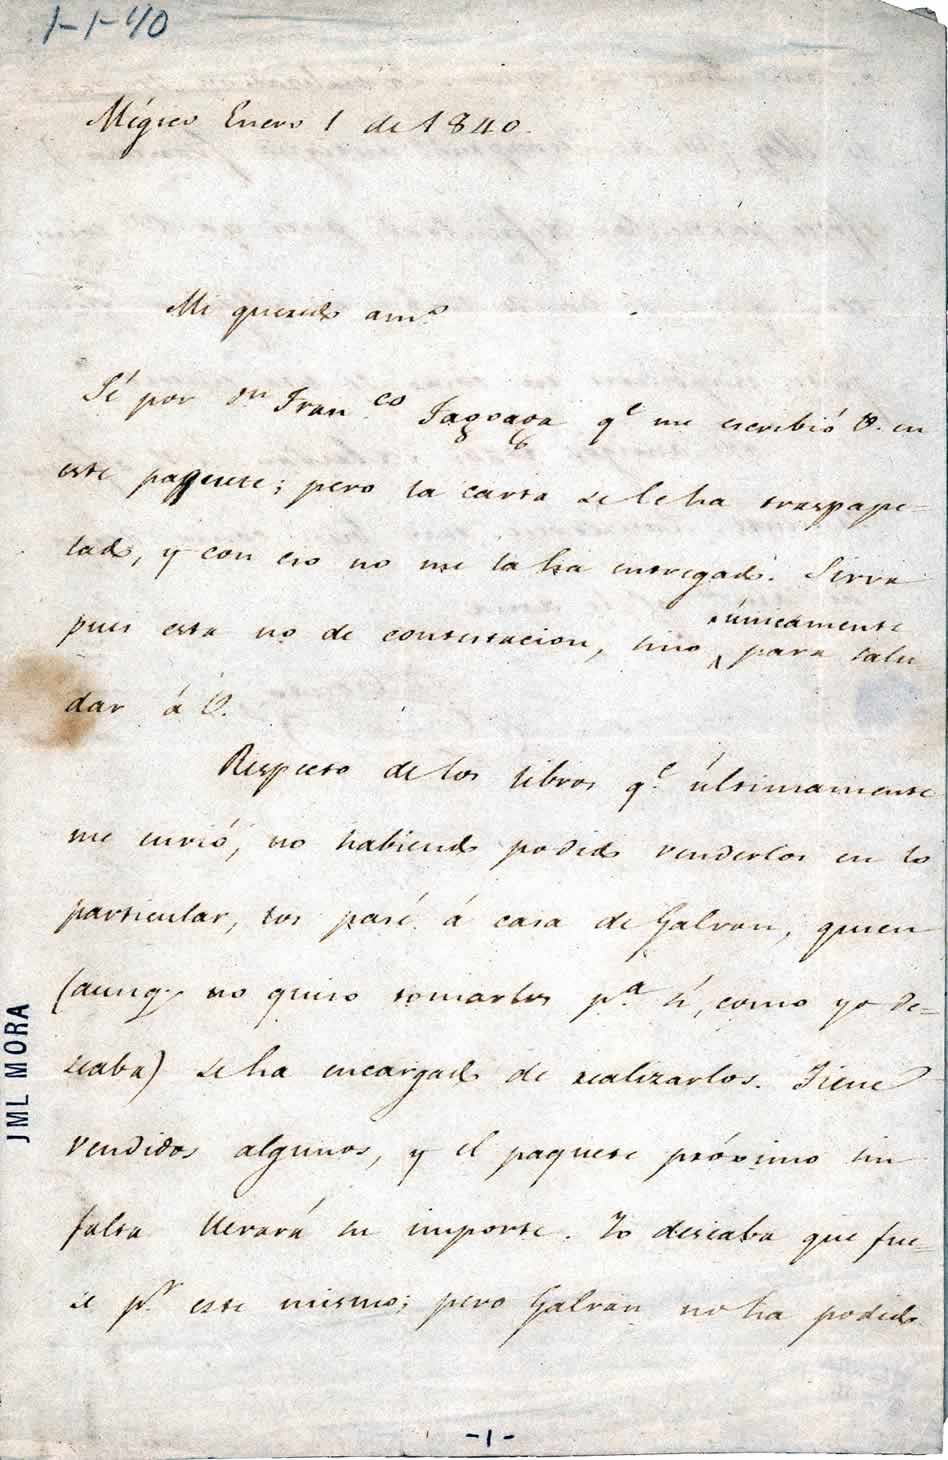 1-1-40
Mégico Enero 1 de 1840.
Mi querido am.º
Sé por Dn Fran.co Fagoaga q.e me escribió V. en
este paquete; pero la carta se le ha traspape=
lado, y con eso no me la ha entregado. Sirva
pues esta no de contestacion, sino únicamente para salu
dar á V.
Respecto de los libros q.e últimamente
me envió, no habiendo podido venderlos en lo
particular, los pasé á casa de Galvan, quien
(aunq.e no quiso tomarlos p.a sí, como yo de=
seaba) se ha encargado de realizarlos. Tiene
vendidos algunos, y el paquete próximo sin
falta llevará su importe. Yo deseaba que fue=
se p.r este mismo; pero Galvan no ha podido
JML MORA
-1-